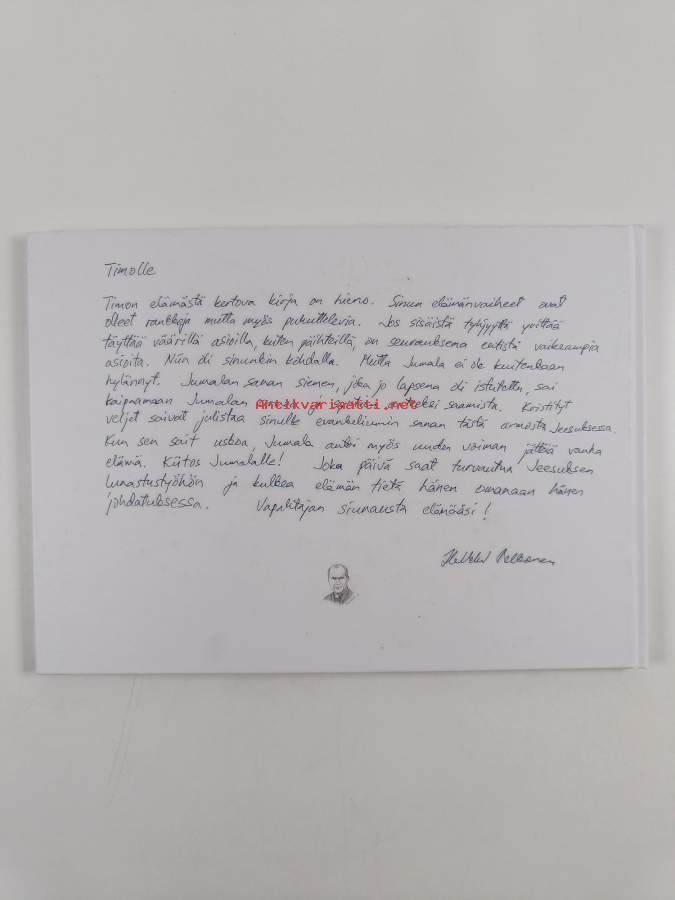 Timolle
Timon elämästä kertova kirja on hieno. Sinun elämänvaiheet ovat
olleet rankkoja mutta myös puhuttelevia. Jos sisäistä tyhjyyttä yrittää
täyttää väärillä asioilla, kuten päihteillä, on seurauksena entistä vaikeampia
asioita. Niin oli sinunkin kohdalla. Mutta Jumala ei ole kuitenkaan
hylännyt. Jumalan sanan siemen, joka jo lapsena oli istutettu, sai
kaipaamaan Jumalan ja anteeksi saamista. Kristityt
Antikvariaatti.net
veljet saivat julistaa sinulle evankeliumin sanan tästä armosta Jeesuksessa.
Kun sen sait uskoa, Jumala antoi myös uuden voiman jättää vanha
elämä. Kiitos Jumalalle! Joka päivä saat turvautua Jeesuksen
lunastustyöhön ja kulkea elämän tietä hänen omanaan hänen
johdatuksessa. Vapahtajan siunausta elämääsi!